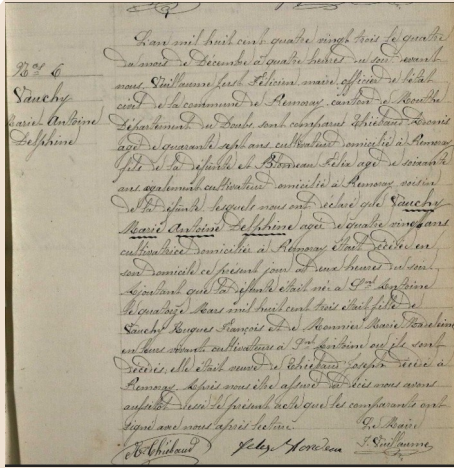 N° 6
Vauchy
Marie Antoine
Delphine
L'an mil huit cent quatre vingt trois le quatre
du mois de Décembre à quatre heures du soir devant
nous, Vuillaume Félicien maire, officier de l'état
civil de la commune de Remoray, canton de Mouthe
Département du Doubs, sont comparus Thiébaud
agé de quarante sept ans cultivateur domicilié à Remoray
fils de la défunte et Bordeau Félix agé de soixante
ans également cultivateur domicilié à Remoray voisin
de la défunte lesquels nous ont déclaré que Vauchy
Marie Antoine Delphine agée de quatre vingt ans
cultivatrice domiciliée à Remoray était décédée en
son domicile ce présent jour à deux heures du soir
Ajoutant que la défunte était née à St Antoine
le quatorze Mars mil huit cent trois était fille de
Vauchy Hugues François et de Monnier Marie
en leurs vivant cultivateurs à St Antoine où ils sont
décédés, elle était veuve de Thiébaud Joseph décédé à
Remoray. Après nous être assuré du décès nous avons
aussitôt dressé le présent acte que les comparants ont
signé avec nous après lecture. Le Maire
Thiébaud Felix Bordeau F. Vuillaume